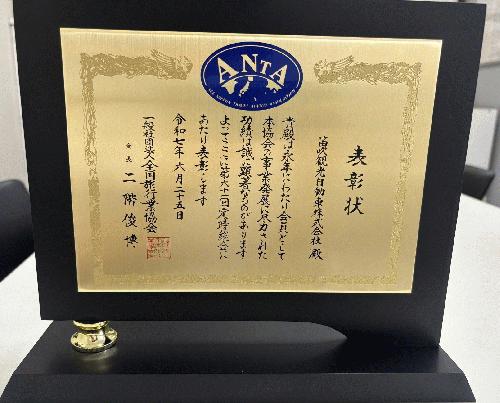 ANTA
ALL NIPPON TRAVEL AGENTS ASSOCIATION
表彰状
笛吹観光自動車株式会社 殿
貴殿は永年にわたり会員として
本協会の事業発展に尽力された
功績は誠に顕著なものがあります
よってここに第六十回定時総会に
あたり表彰します
令和七年六月二十五日
一般社団法人全国旅行業協会
会長 二階俊博